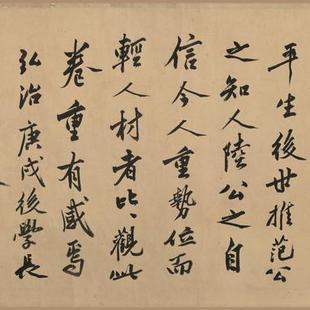 平生後世推范公
之知人陸公之自
信今人重勢位而
輕人材者比〻觀此
卷重有感焉
弘治庚戌後學長